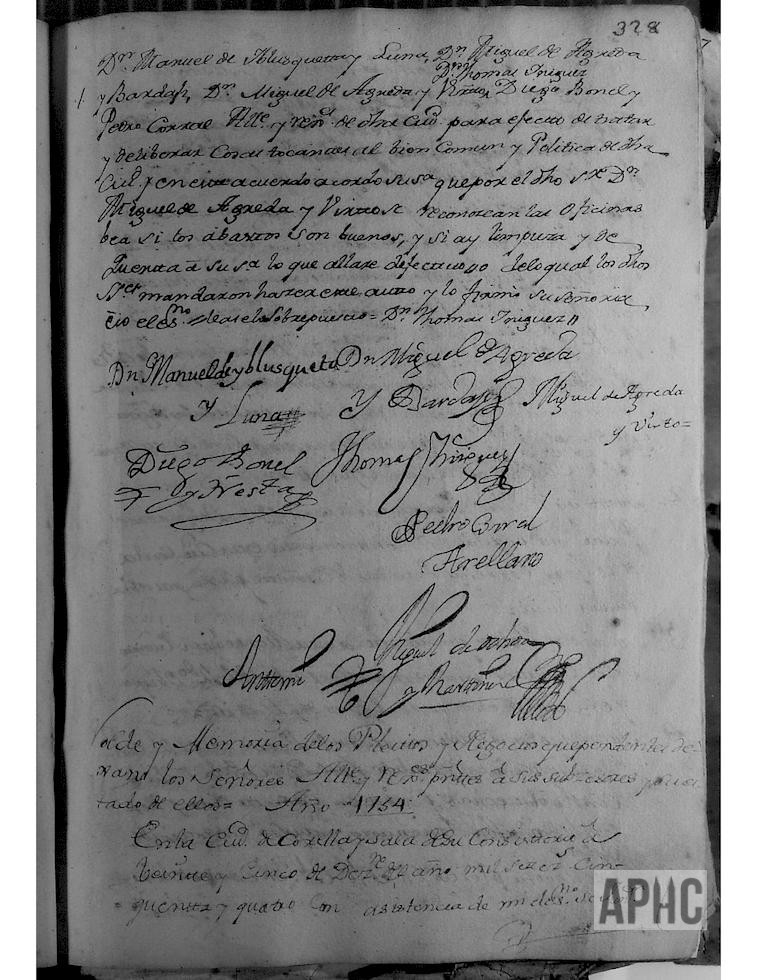 328
Dn. Manuel de Yblusquetta y Luna, Dn. Miguel de Agreda
Dn. Thomas Yñiguez
y Bardaxi, Dn. Miguel de Agreda y Virto, Diego Bonel y
Pedro Corral Alle. y rexs. de dha Ciud. para efecto de tratar
y deliberar Cosas tocantes al bien Comun y Politica de dha
Ciud. y en este acuerdo acordo su sa. que por el dho sr. Dn.
Miguel de Agreda y Virto se reconozcan las Oficinas
bea si los abastos son buenos, y si ay limpieza y de
Quentta a su sa. lo que allare defectuoso delo qual los dhos
Sres. mandaron hazer este auto y lo firmó su señoria
Dn. Thomas Yñiguez
Dn. Manuel de Yblusqueta Dn. Miguel de Agreda
y Luna y Bardaxi Miguel de Agreda
y Virto
Diego Bonel Thomas Yñiguez
y Yñesta
Pedro Corral
Arellano
Antemi Miguel de Ochoa
y Martinez
Rolde y Memoria delos Pleitos y Negocios que pendientes de
xano los Señores Alle. y rexs. a sus subzesores y su es
tado de ellos = Año 1754.
En la Ciud. de Corella y sala de su Consistorio a
beinte y cinco de Dezre. del año mil setezs. cin
quentta y quatro con asistencia de mi el esno.
APHC